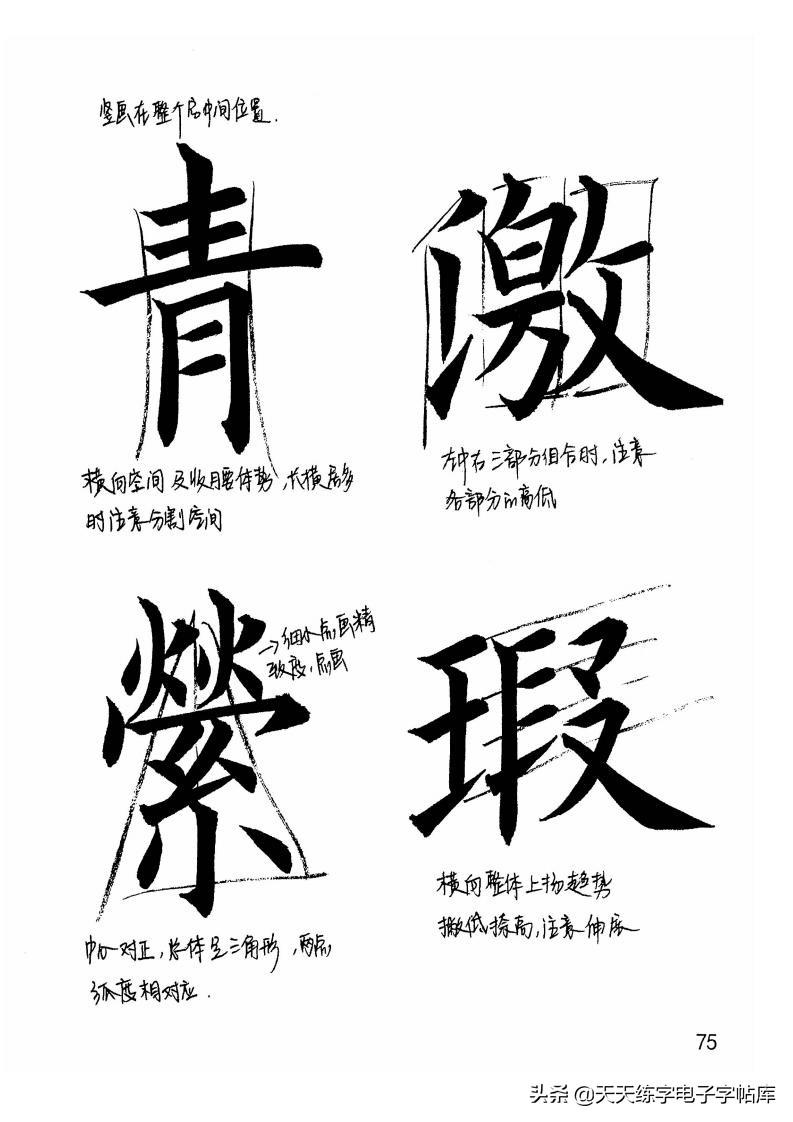 竖画在整个字中间位置.
青
激
横向空间及收腰体势,长横居多
时注意分割空间
左中右三部分组合时,注意
各部分的高低
縈
→细小点画精
致度,点画
瑕
横向整体上扬趋势
撇低捺高,注意伸展
中心对正,总体呈三角形,两点
弧度相对应.
75
头条 @天天练字电子字帖库